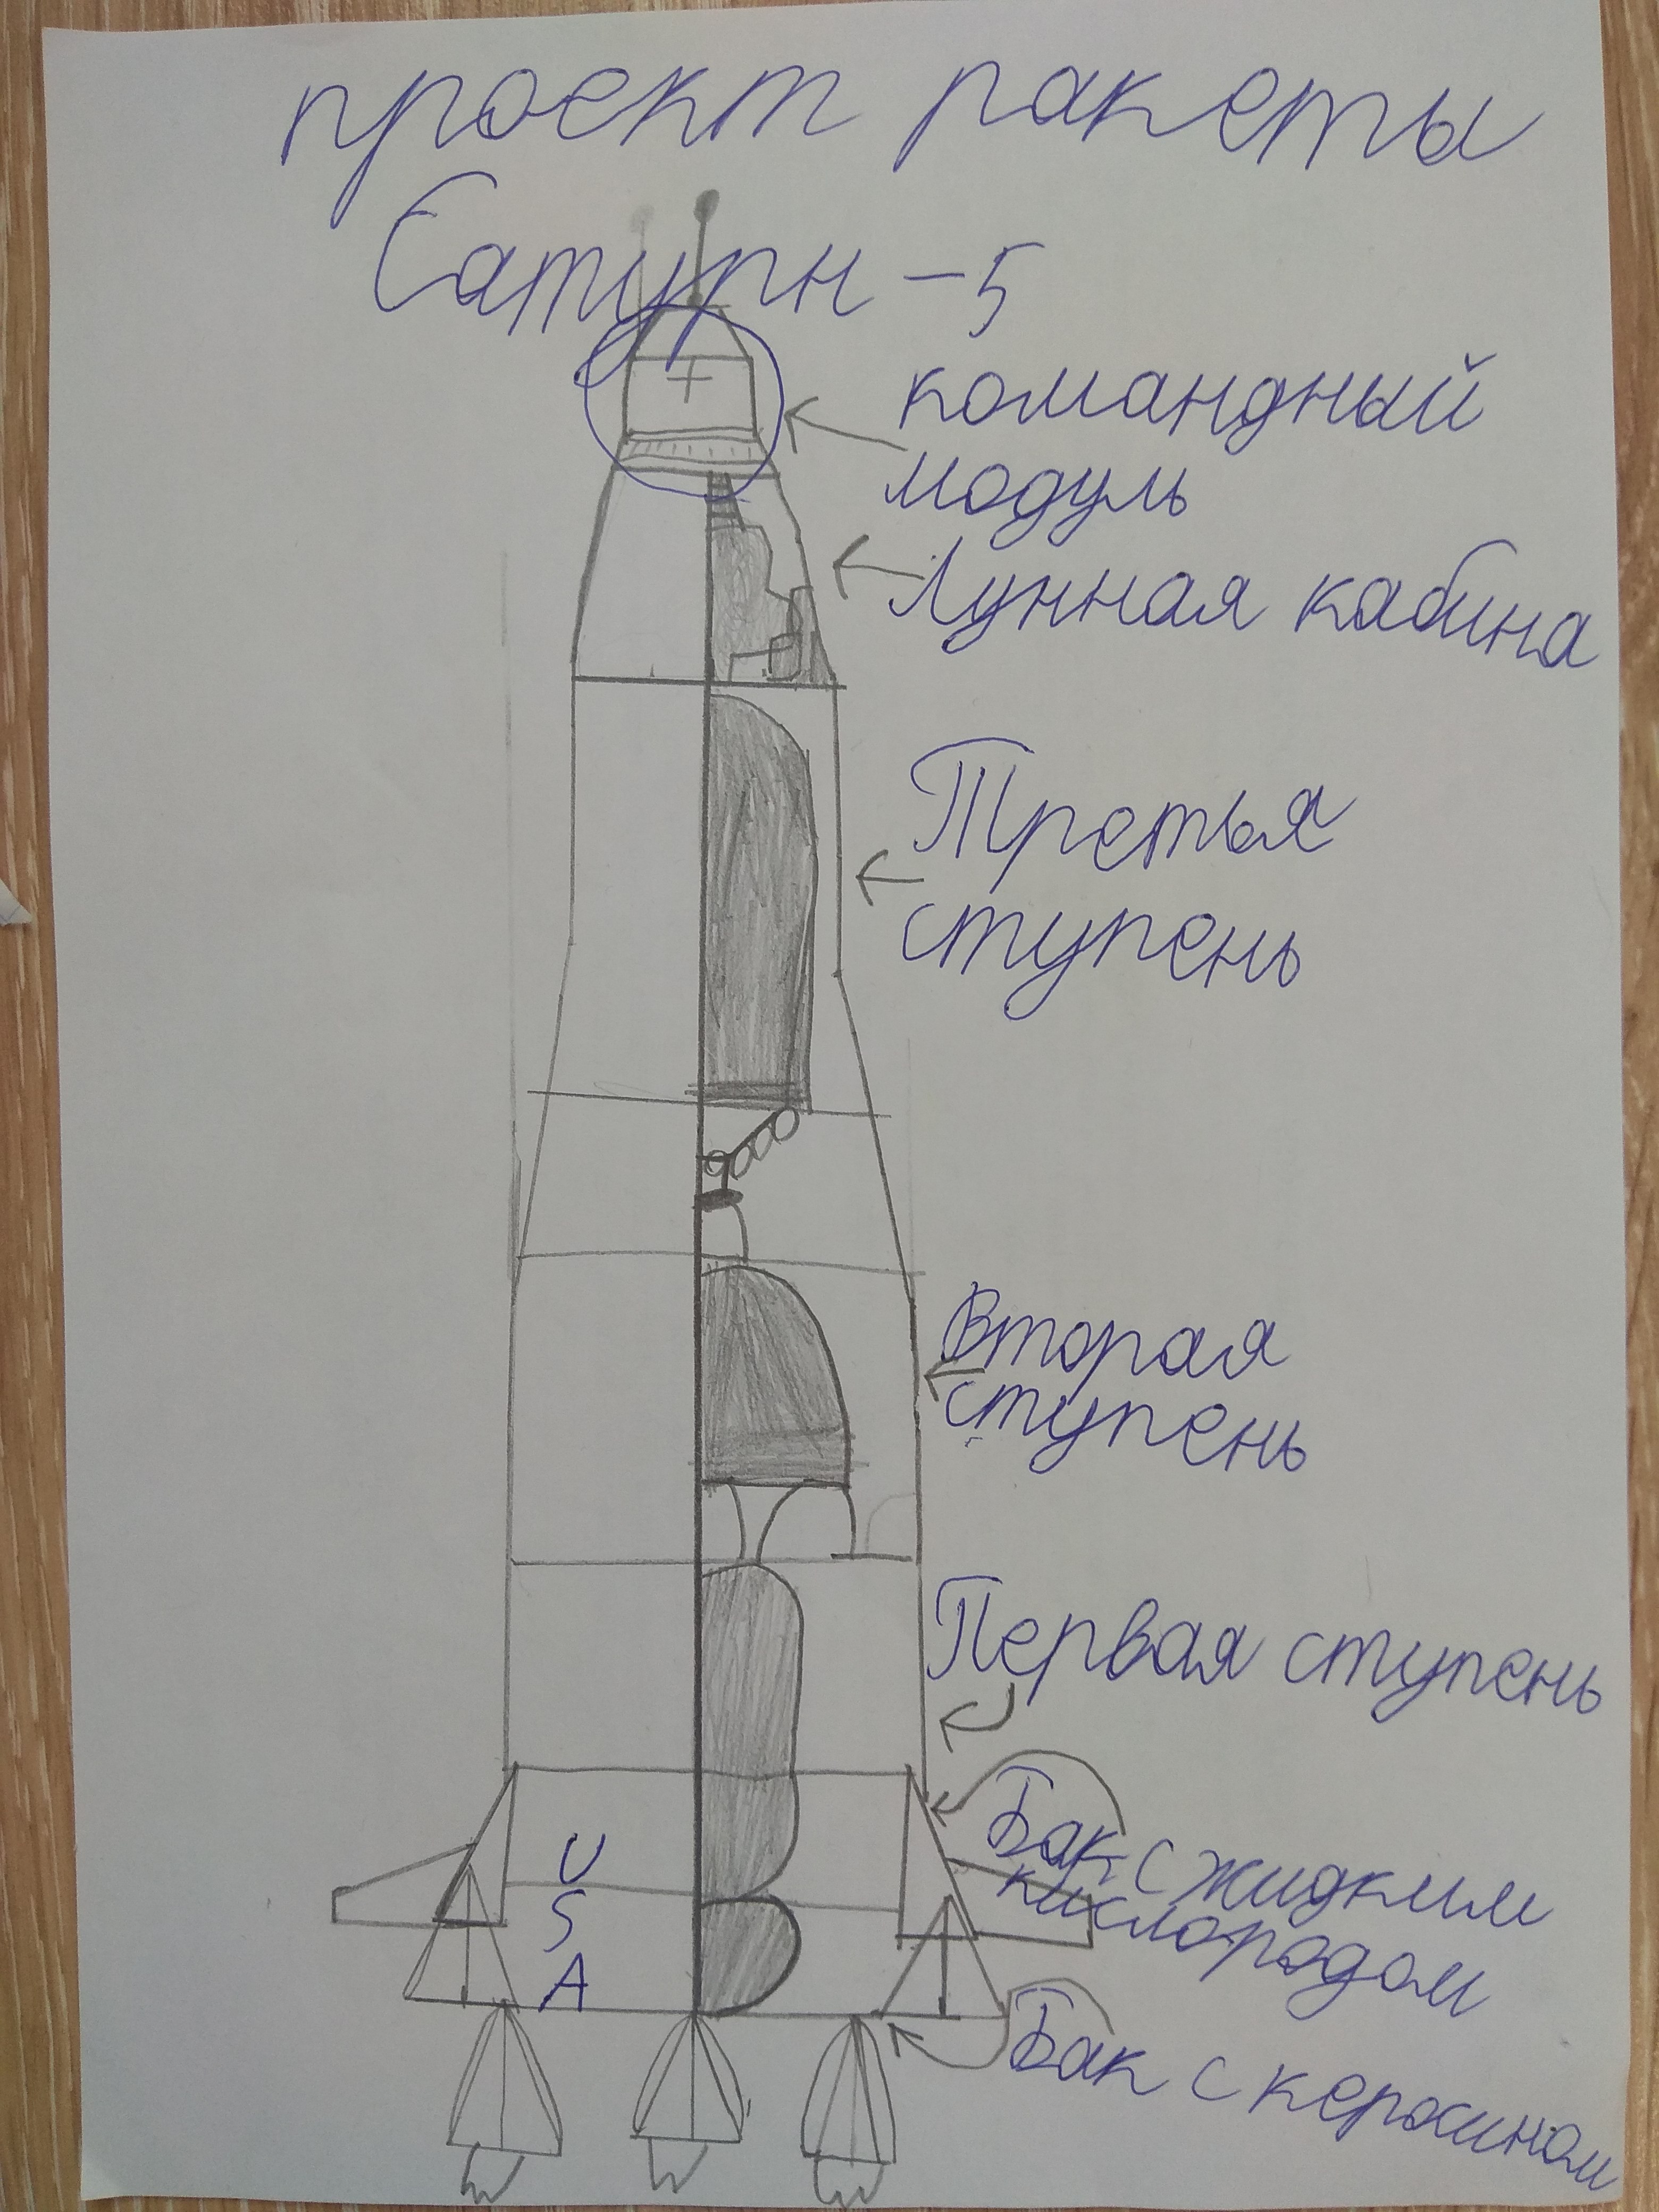 проект ракеты
Сатурн-5
командный
модуль
Лунная кабина
Третья
ступень
Вторая
ступень
Первая ступень
Бак с жидким
кислородом
U
S
A
Бак с керосином